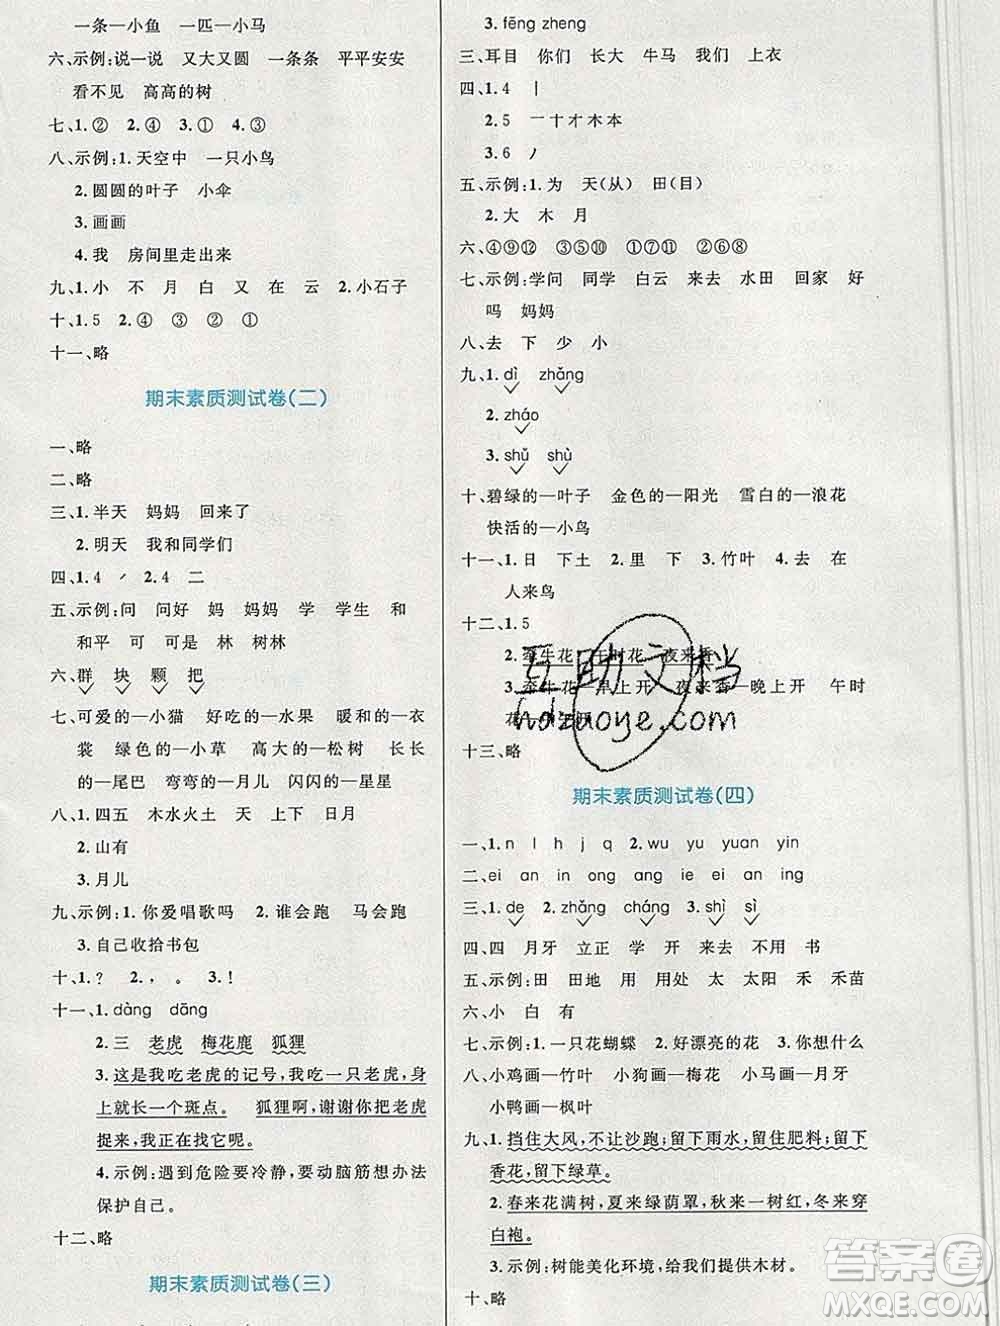 一条—小鱼 一匹—小马
六、示例:说一说 又大又圆 一条条 平平安安
看不见 高高的树
七、1.② 2.④ 3.① 4.③
八、示例:1.天空中 一只小鸟
2.圆圆的叶子 小伞
3.画画
4.我 房间里走出来
九、1.小 不 月 白 又 在 云 2.小石子
十、1.5 2.④ ③ ② ①
十一、略
期末素质测试卷(二)
一、略
二、略
三、1.半天 妈妈 回来了
2.明天 我和同学们
四、1.4 ㇒ 2.4 二
五、示例:问 问好 妈 妈妈 学 学生 和
和平 可 可是 林 树林
六、群 块 颗 把
七、可爱的—小猫 好吃的—水果 暖和的—衣
裳 绿色的—小草 高大的—松树 长长
的—尾巴 弯弯的—月儿 闪闪的—星星
八、1.四五 木水火土 天 上下 日月
2.山有
3.月儿
九、示例:1.你爱唱歌吗 2.谁会跑 马会跑
3.自己收拾书包
十、1.? 2., 。 3.!
十一、1.dàng dāng
2.三 老虎 梅花鹿 狐狸
3.这是我吃老虎的记号,我吃一只老虎,身
上就长一个斑点。 狐狸啊,谢谢你把老虎
捉来,我正在找它呢。
4.示例:遇到危险要冷静,要动脑筋想办法
保护自己。
十二、略
期末素质测试卷(三)
3.fēng zheng
三、耳目 你们 长大 牛马 我们 上衣
四、1.4 丨
2.5 一十才木本
3.6 丿
五、示例:1.为 天(从) 田(目)
2.大 木 月
六、④⑨⑫ ③⑤⑩ ①⑦⑪ ②⑥⑧
七、示例:学问 同学 白云 来去 水田 回家 好
吗 妈妈
八、去 下 少 小
九、1.dì zhǎng
2.zháo
3.shǔ shù
十、碧绿的—叶子 金色的—阳光 雪白的—浪花
快活的—小鸟
十一、1.日 下土 2.里 下 3.竹叶 4.去 在
人来鸟
十二、1.5
2.牵牛花 午时花 夜来香
3.牵牛花—早上开 夜来香—晚上开 午时
花—
十三、略
互助文档
hdzuoye.com
期末素质测试卷(四)
一、1.n l h j q 2.wu yu yuan yin
二、ei an in ong ang ie eng
三、1.de 2.zhǎng cháng 3.shì sì
四、四 月牙 立正 学 开 来去 不用 书
五、示例:田 田地 用 用处 太 太阳 禾 禾苗
六、小 白 有
七、示例:1.一只花蝴蝶 2.好漂亮的花 3.你想什么
八、小鸡画—竹叶 小狗画—梅花 小马画—月牙
小鸭画—枫叶
九、1.挡住大风,不让沙跑;留下雨水,留住肥料;留下
香花,留下绿草。
2.春来花满树,夏来绿荫罩,秋来一树红,冬来穿
白袍。
3.示例:树能美化环境,给我们提供木材。
十、略
答案圈
MXQE.COM